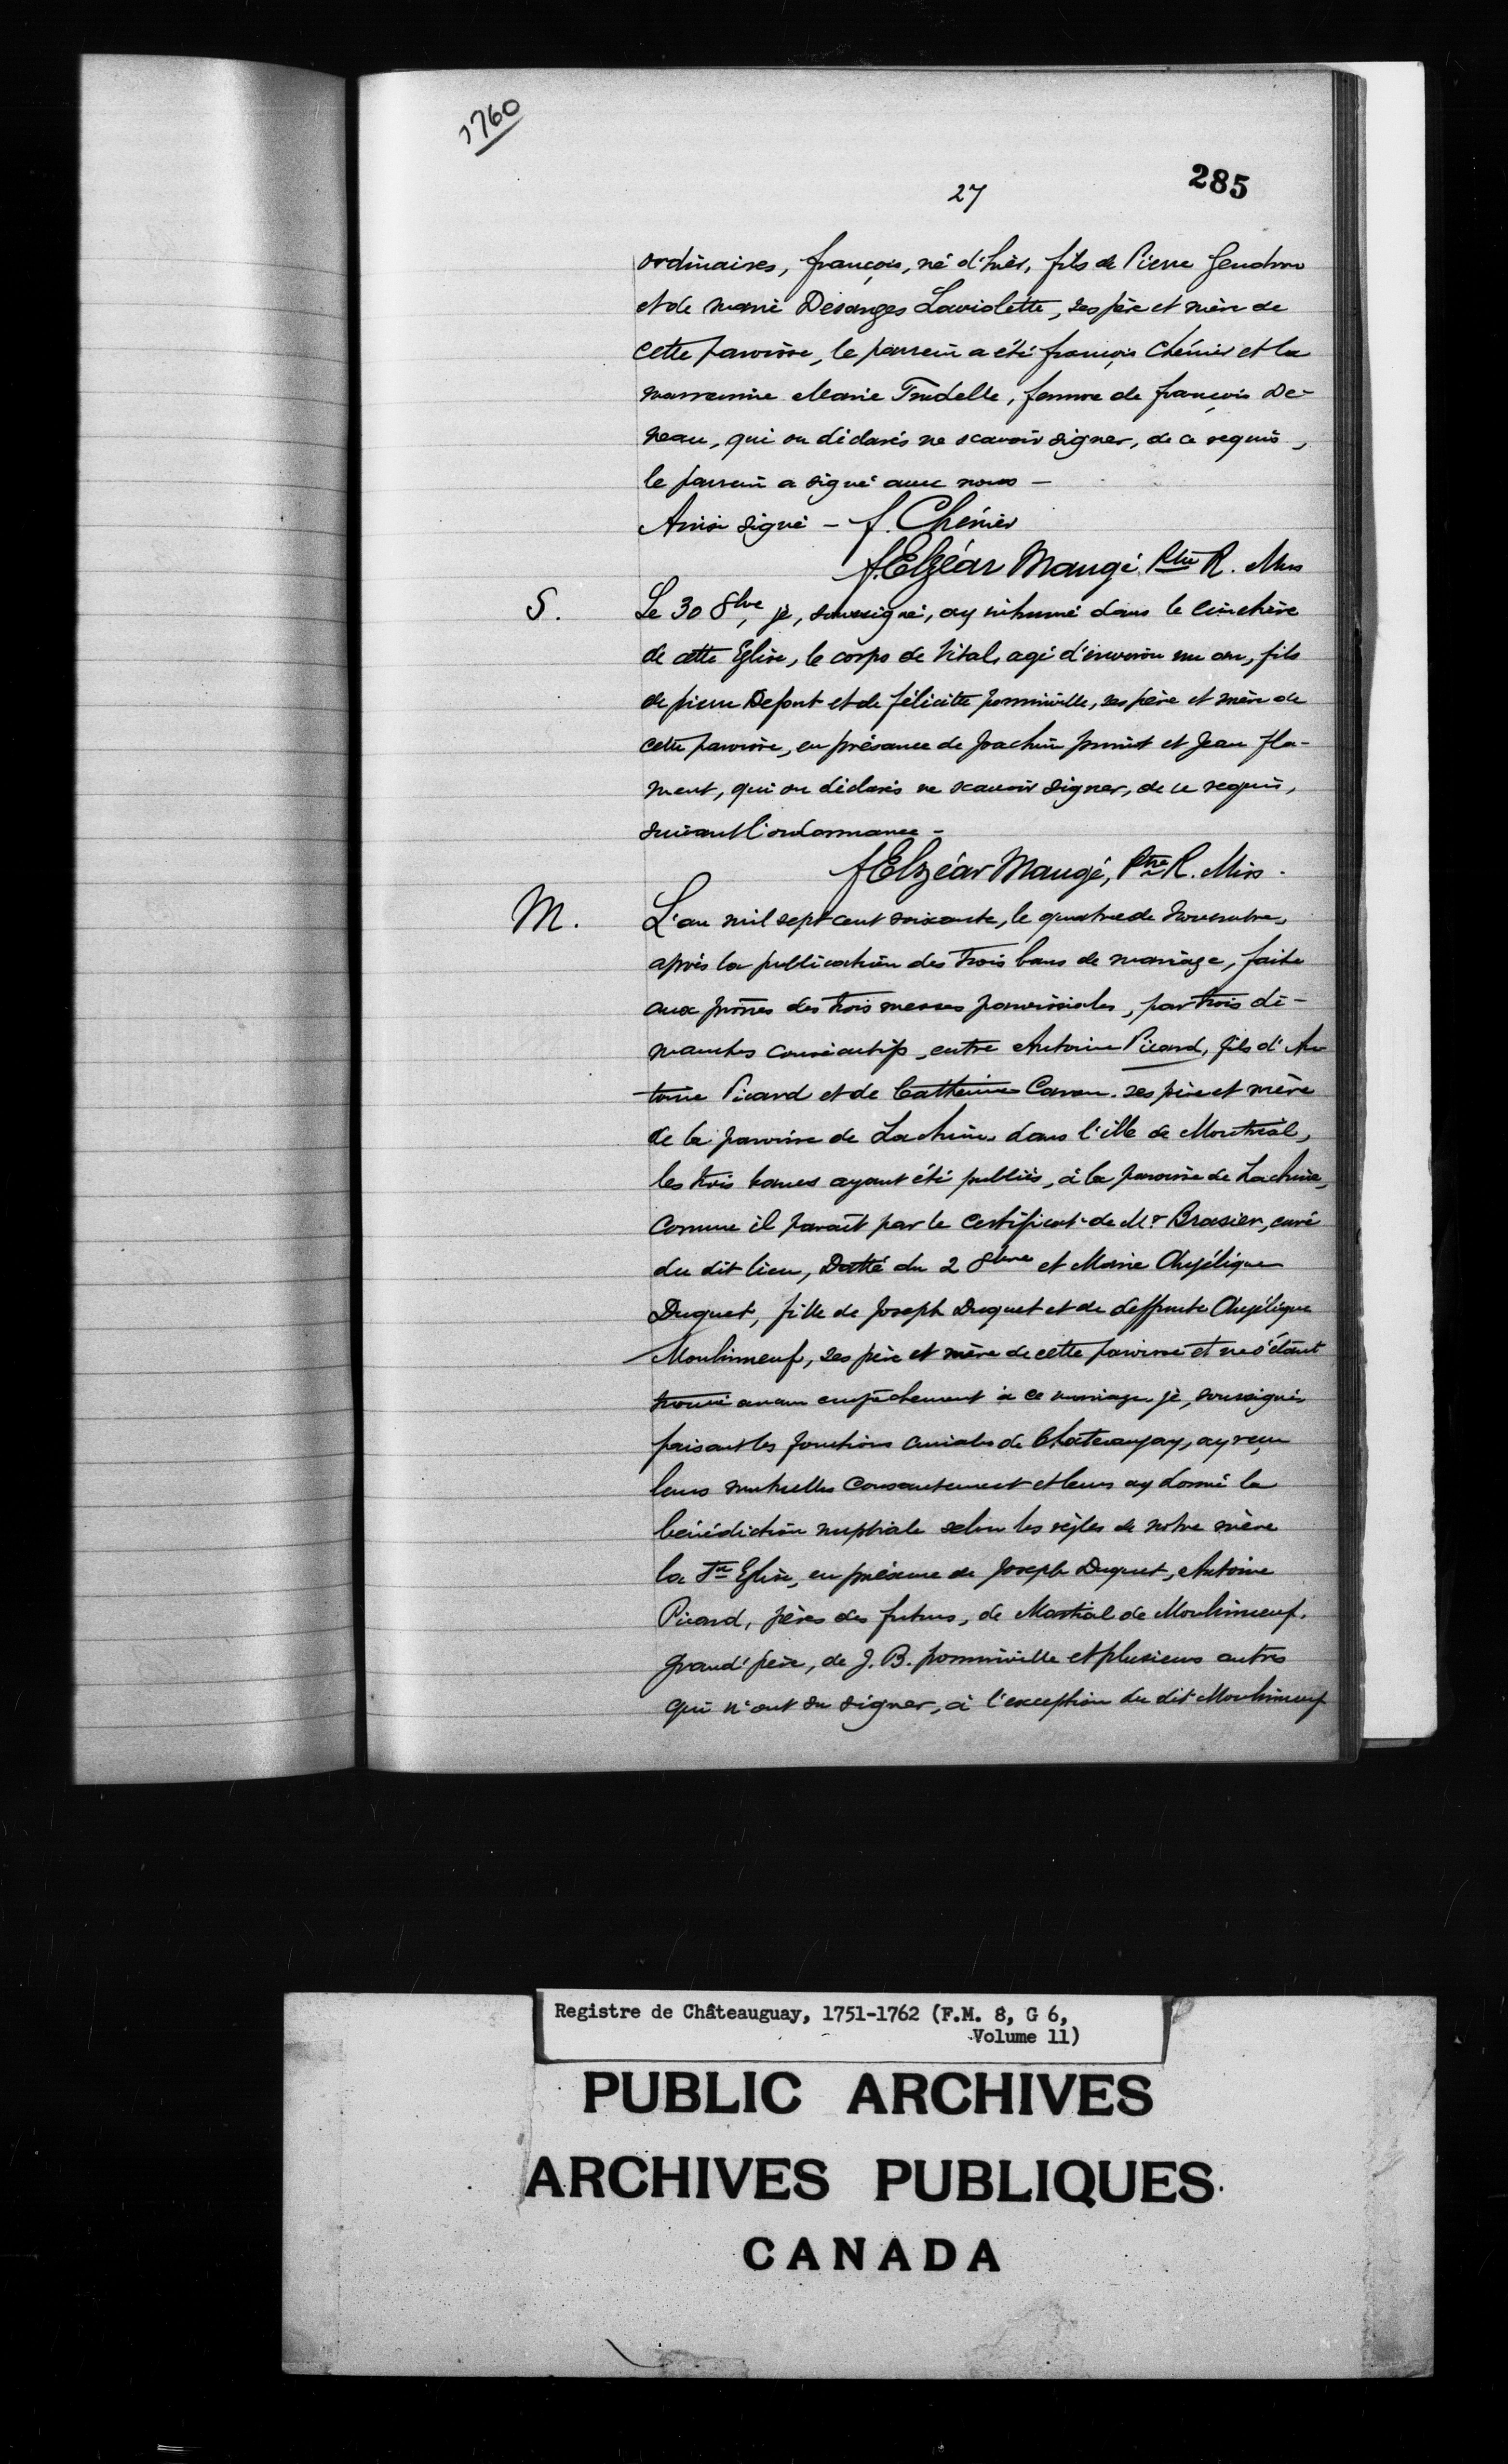 1760
27
285
ordinaires, françois, né d'hièr, fils de Pierre Gendron
et de marie Desanges Laviolette, ses père et mère de
cette paroisse, le parrein a été françois Chénier et la
marreinne Marie Trudelle, femme de françois De-
neau, qui on déclarés ne scavoir signer, de ce requis,
le parrein a signé avec nous –
Ainsi signé – f. Chénier
f. Elzéar Maugé Ptre R. Miss
S.
Le 30 8bre, je, soussigné, ay inhumé dans le cimetière
de cette Eglise, le corps de Vital, agé d'environ un an, fils
de pierre Defont et de félicité pomminville, ses père et mère de
cette paroisse, en présance de Joachim primot et Jean fla-
ment, qui on déclarés ne scavoir signer, de ce requis,
suivant l'ordonnance –
f Elzéar Maugé, Ptre R. Miss.
M.
L'an mil sept cent soixante, le quatre de Novembre,
après la publication des trois bans de mariage, faite
aux prônes des trois messes paroissiales, par trois di-
manches consécutifs, entre Antoine Picard, fils d'An
toine Picard et de Catherine Caron. ses père et mère
de la paroisse de Lachine, dans l'ille de Montréal,
les trois bancs ayant été publiés, à la paroisse de Lachine,
comme il parait par le certificat de Mr Brasier, curé
du dit lieu, Datté du 2 8bre et Marie Angélique
Duquet, fille de Joseph Duquet et de deffunte Angélique
Moulinneuf, ses père et mère de cette paroisse et ne s'étant
trouvé aucun empêchement à ce mariage, je, soussigné,
faisant les fonctions curiales de Chateaugay, ay reçu
leurs mutuelles consantement et leurs ay donné la
bénédiction nuptiale selon les règles de notre mère
la Ste Eglise, en présence de Joseph Duquet, Antoine
Picard, pères des futurs, de Martial de Moulinneuf,
grand'père, de J. B. pomminville et plusieurs autres
qui n'ont su signer, à l'exception du dit Moulinneuf
Registre de Châteauguay, 1751-1762 (F.M. 8, G 6,
Volume 11)
PUBLIC ARCHIVES
ARCHIVES PUBLIQUES
CANADA